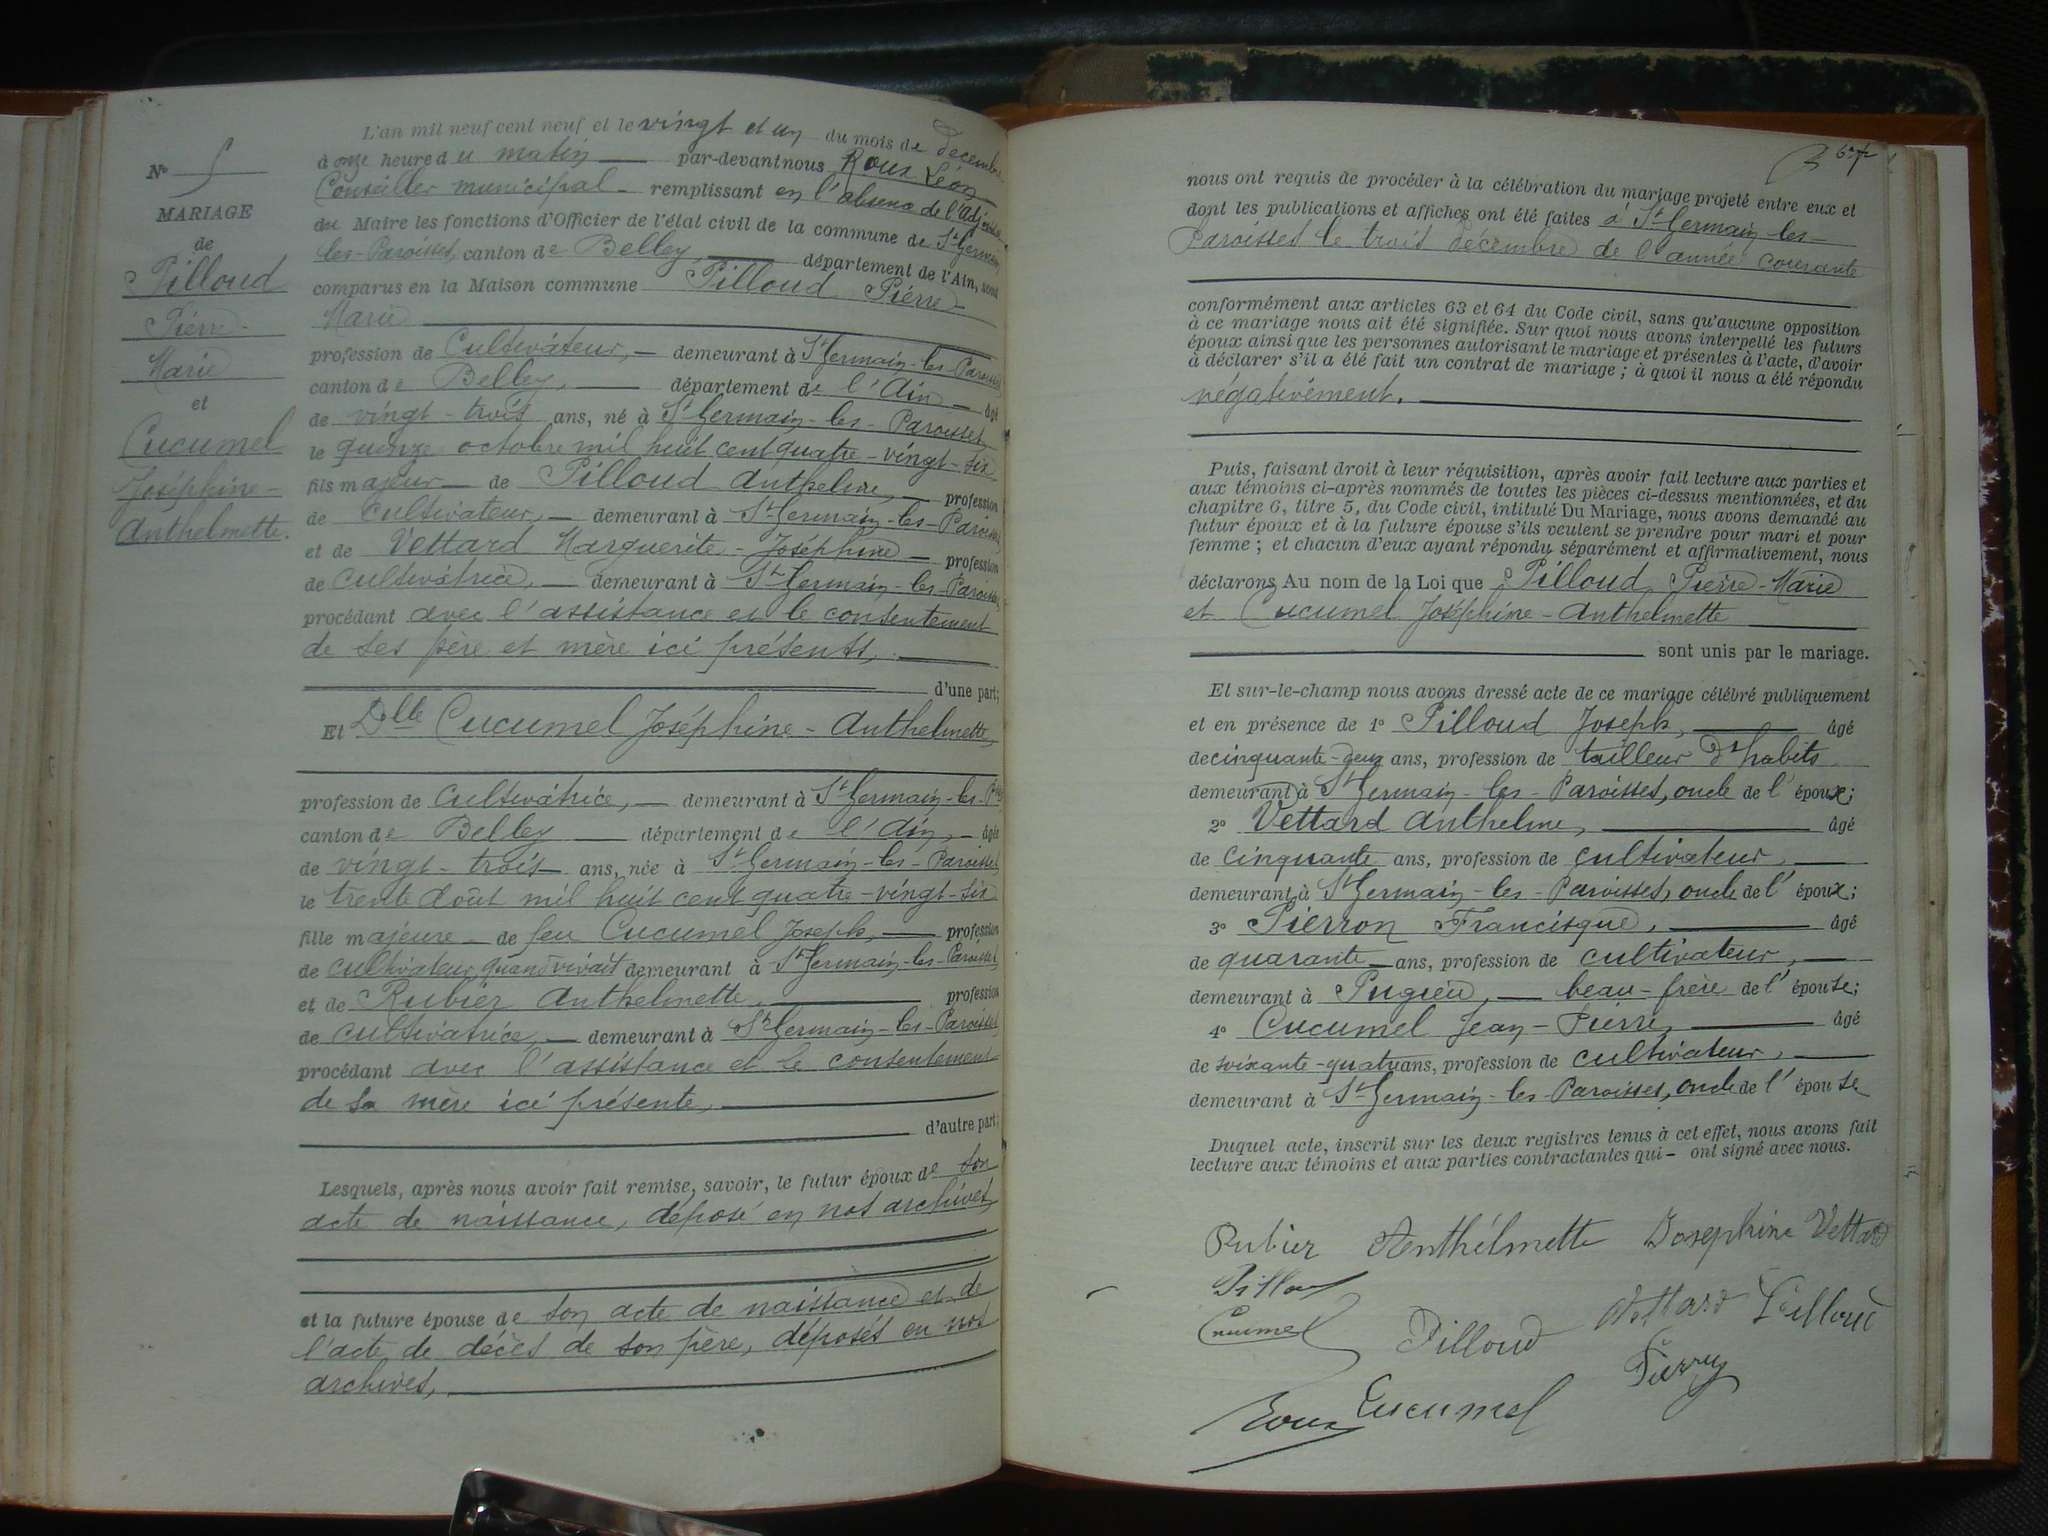 N° 5
MARIAGE
de
Pilloud
Pierre
Marie
et
Cucumel
Joséphine-
Anthelmette.
L'an mil neuf cent neuf et le vingt et un du mois de décembre
à onze heure du matin par-devant nous Roux Léon
Conseiller municipal remplissant en l'absence de l'Adjoint
du Maire les fonctions d'Officier de l'état civil de la commune de St Germain
les-Paroisses, canton de Belley département de l'Ain, sont
comparus en la Maison commune Pilloud Pierre-
Marie
profession de Cultivateur, demeurant à St Germain-les-Paroisses
canton de Belley, département de l'Ain âgé
de vingt-trois ans, né à St Germain-les-Paroisses,
le quinze octobre mil huit cent quatre-vingt-six
fils majeur de Pilloud Anthelme, profession
de cultivateur, demeurant à St Germain-les-Paroisses,
et de Vettard Marguerite-Joséphine profession
de cultivatrice, demeurant à St Germain-les-Paroisses,
procédant avec l'assistance et le consentement
de ses père et mère ici présents,
d'une part;
Et Dlle Cucumel Joséphine-Anthelmette,
profession de cultivatrice, demeurant à St Germain-les-P
canton de Belley département de l'Ain, âgée
de vingt-trois ans, née à St Germain-les-Paroisses
le trente août mil huit cent quatre-vingt-six
fille majeure de feu Cucumel Joseph, profession
de cultivateur, quand vivait demeurant à St Germain-les-Paroisses
et de Rubier Anthelmette, profession
de cultivatrice, demeurant à St Germain-les-Paroisses
procédant avec l'assistance et le consentement
de sa mère ici présente,
d'autre part;
Lesquels, après nous avoir fait remise, savoir, le futur époux de son
acte de naissance, déposé en nos archives,
et la future épouse de son acte de naissance et de
l'acte de décès de son père, déposés en nos
archives,
nous ont requis de procéder à la célébration du mariage projeté entre eux et
dont les publications et affiches ont été faites à St Germain-les-
Paroisses le trois décembre de l'année courante
conformément aux articles 63 et 64 du Code civil, sans qu'aucune opposition
à ce mariage nous ait été signifiée. Sur quoi nous avons interpellé les futurs
époux ainsi que les personnes autorisant le mariage et présentes à l'acte, d'avoir
à déclarer s'il a été fait un contrat de mariage; à quoi il nous a été répondu
négativement.
Puis, faisant droit à leur réquisition, après avoir fait lecture aux parties et
aux témoins ci-après nommés de toutes les pièces ci-dessus mentionnées, et du
chapitre 6, titre 5, du Code civil, intitulé Du Mariage, nous avons demandé au
futur époux et à la future épouse s'ils veulent se prendre pour mari et pour
femme; et chacun d'eux ayant répondu séparément et affirmativement, nous
déclarons Au nom de la Loi que Pilloud Pierre-Marie
et Cucumel Joséphine-Anthelmette
sont unis par le mariage.
Et sur-le-champ nous avons dressé acte de ce mariage célébré publiquement
et en présence de 1° Pilloud Joseph, âgé
de cinquante-deux ans, profession de tailleur d'habits
demeurant à St Germain-les-Paroisses, oncle de l'époux;
2° Vettard Anthelme, âgé
de cinquante ans, profession de cultivateur,
demeurant à St Germain-les-Paroisses, oncle de l'époux;
3° Pierron Francisque, âgé
de quarante ans, profession de cultivateur,
demeurant à Pugieu, beau-frère de l'épouse;
4° Cucumel Jean-Pierre, âgé
de soixante-quatre ans, profession de cultivateur,
demeurant à St Germain-les-Paroisses, oncle de l'épouse
Duquel acte, inscrit sur les deux registres tenus à cet effet, nous avons fait
lecture aux témoins et aux parties contractantes qui- ont signé avec nous.
Rubier Anthélmette Josephine Vettard
Pilloud
Cucumel Pilloud Vettard Pilloud
Roux Cucumel